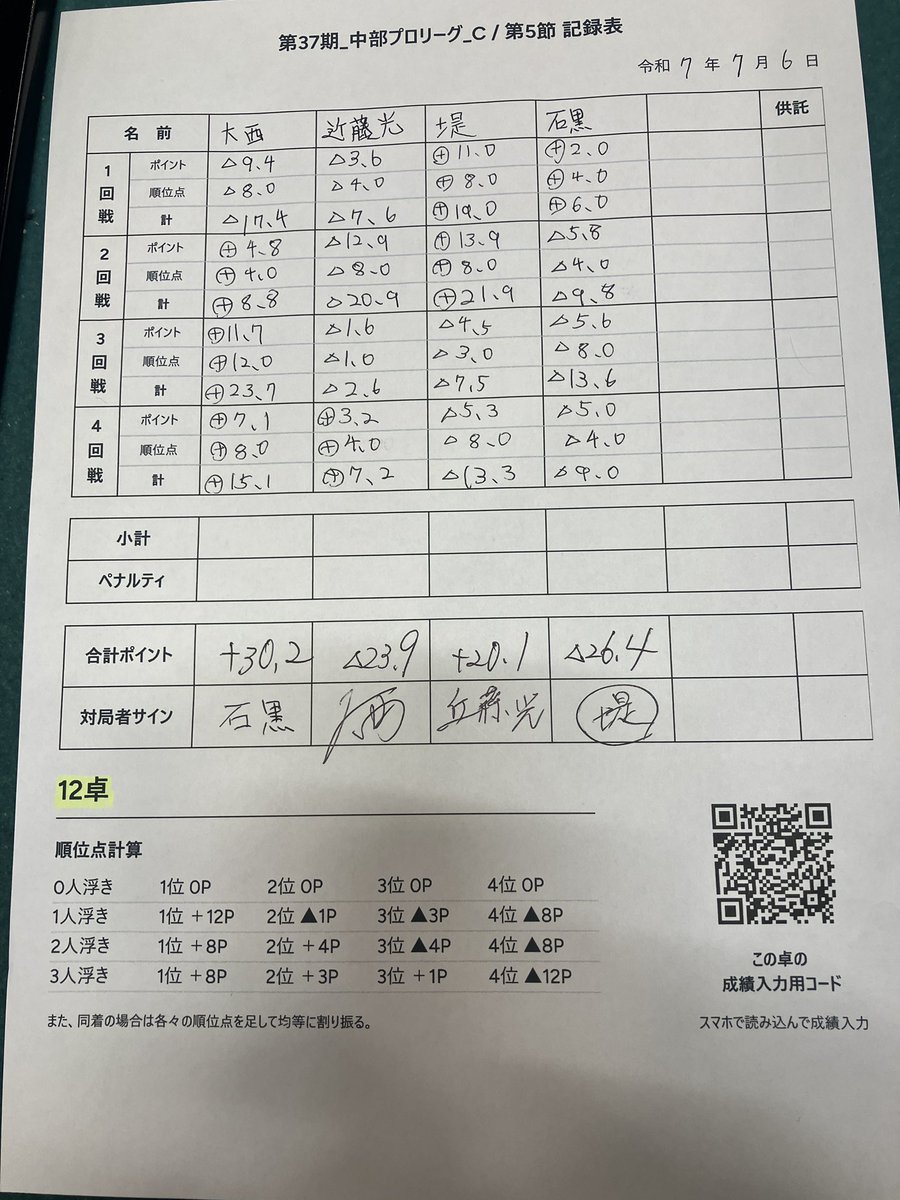 第37期_中部プロリーグ_C / 第5節 記録表
令和 7 年 7 月 6 日
名 前 大西 近藤光 堤 石黒 供託
1回戦 ポイント △9.4 △3.6 ⊕11.0 ⊕2.0
順位点 △8.0 △4.0 ⊕8.0 ⊕4.0
計 △17.4 △7.6 ⊕19.0 ⊕6.0
2回戦 ポイント ⊕4.8 △12.9 ⊕13.9 △5.8
順位点 ⊕4.0 △8.0 ⊕8.0 △4.0
計 ⊕8.8 △20.9 ⊕21.9 △9.8
3回戦 ポイント ⊕11.7 △1.6 △4.5 △5.6
順位点 ⊕12.0 △1.0 △3.0 △8.0
計 ⊕23.7 △2.6 △7.5 △13.6
4回戦 ポイント ⊕7.1 ⊕3.2 △5.3 △5.0
順位点 ⊕8.0 ⊕4.0 △8.0 △4.0
計 ⊕15.1 ⊕7.2 △13.3 △9.0
小計
ペナルティ
合計ポイント +30.2 △23.9 +20.1 △26.4
対局者サイン 石黒 大西 近藤光 堤
12卓
順位点計算
0人浮き 1位 0P 2位 0P 3位 0P 4位 0P
1人浮き 1位 +12P 2位 ▲1P 3位 ▲3P 4位 ▲8P
2人浮き 1位 +8P 2位 +4P 3位 ▲4P 4位 ▲8P
3人浮き 1位 +8P 2位 +3P 3位 +1P 4位 ▲12P
また、同着の場合は各々の順位点を足して均等に割り振る。
この卓の
成績入力用コード
スマホで読み込んで成績入力